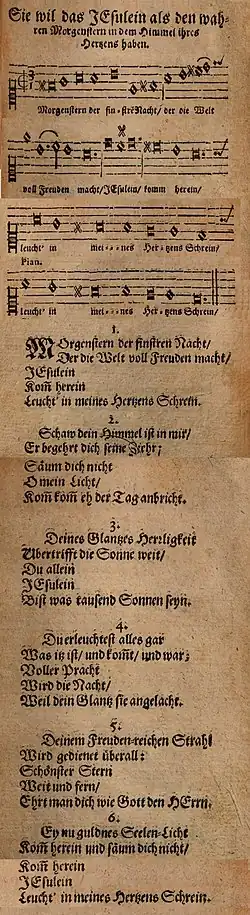 Sie wil das JEsulein als den wah-
ren Morgenstern in dem Himmel ihres
Hertzens haben.
Morgenstern der fin-strē Nacht/ der die Welt
voll Freuden macht/JEsulein/ komm herein/
leucht' in mei---nes Her-tzens Schrein/
Pian.
leucht' in mei---nes Her-tzens Schrein/
1.
MOrgenstern der finstren Nacht/
Der die Welt voll Freuden macht/
JEsulein
Kom̄ herein
Leucht' in meines Hertzens Schrein.
2.
Schaw dein Himmel ist in mir/
Er begehrt dich seine Ziehr;
Säum dich nicht
O mein Licht/
Kom̄ kom̄ eh der Tag anbricht.
3.
Deines Glantzes Herrligkeit
Übertrifft die Sonne weit/
Du allein
JEsulein
Bist was tausend Sonnen seyn.
4.
Du erleuchtest alles gar
Was itz ist/ und kom̄t/ und war;
Voller Pracht
Wird die Nacht/
Weil dein Glantz sie angelacht.
5.
Deinem Freuden-reichen Strahl
Wird gedienet überall:
Schönster Stern
Weit und fern/
Ehrt man dich wie Gott den HErrn.
6.
Ey nu guldnes Seelen-Licht
Kom̄ herein und säum dich nicht/
Kom̄ herein
JEsulein
Leucht' in meines Hertzens Schrein.